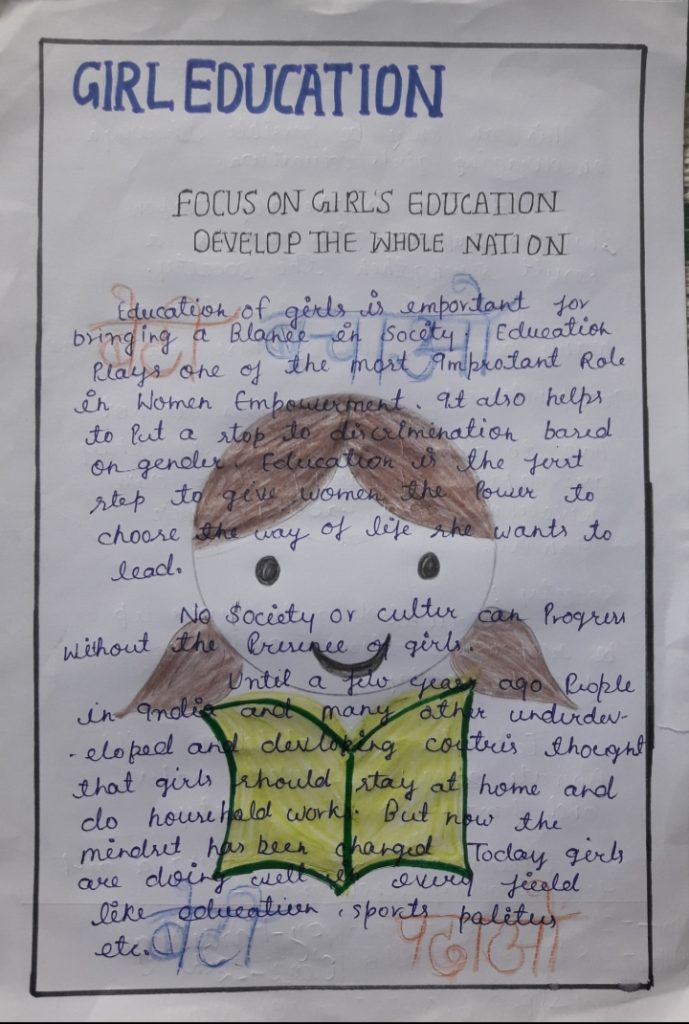 GIRL EDUCATION
FOCUS ON GIRL'S EDUCATION
DEVELOP THE WHOLE NATION
बेटी बचाओ
Education of girls is emportant for
bringing a Blance in Society. Education
Plays one of the most Improtant Role
in Women Empowerment. It also helps
to Put a stop to discrimination based
on gender. Education is the first
step to give women the Power to
choose the way of life she wants to
lead.
No Society or cultur can Progress
without the Presence of girls.
Until a few years ago People
in India and many other underdev-
-eloped and devloping coutris thought
that girls should stay at home and
do household works. But now the
mindset has been changed. Today girls
are doing well in every field
like education, sports palitics
etc.
बेटी पढाओ